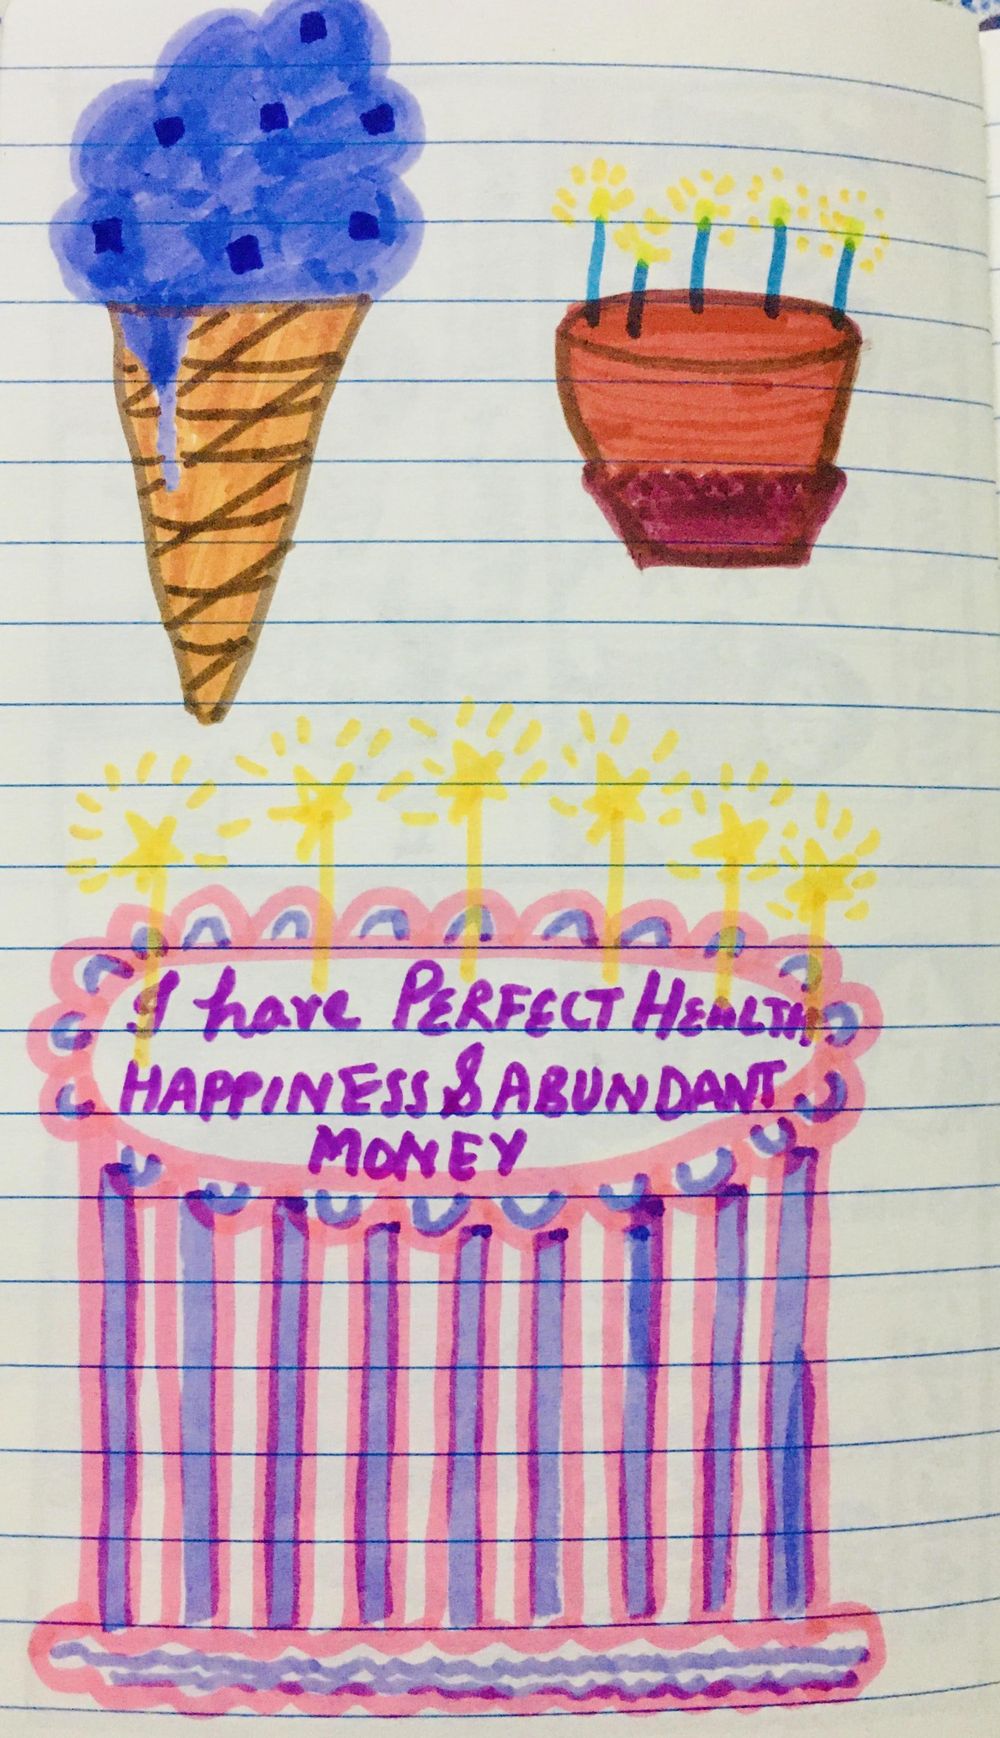 I have PERFECT HEALTH
HAPPINESS & ABUNDANT
MONEY